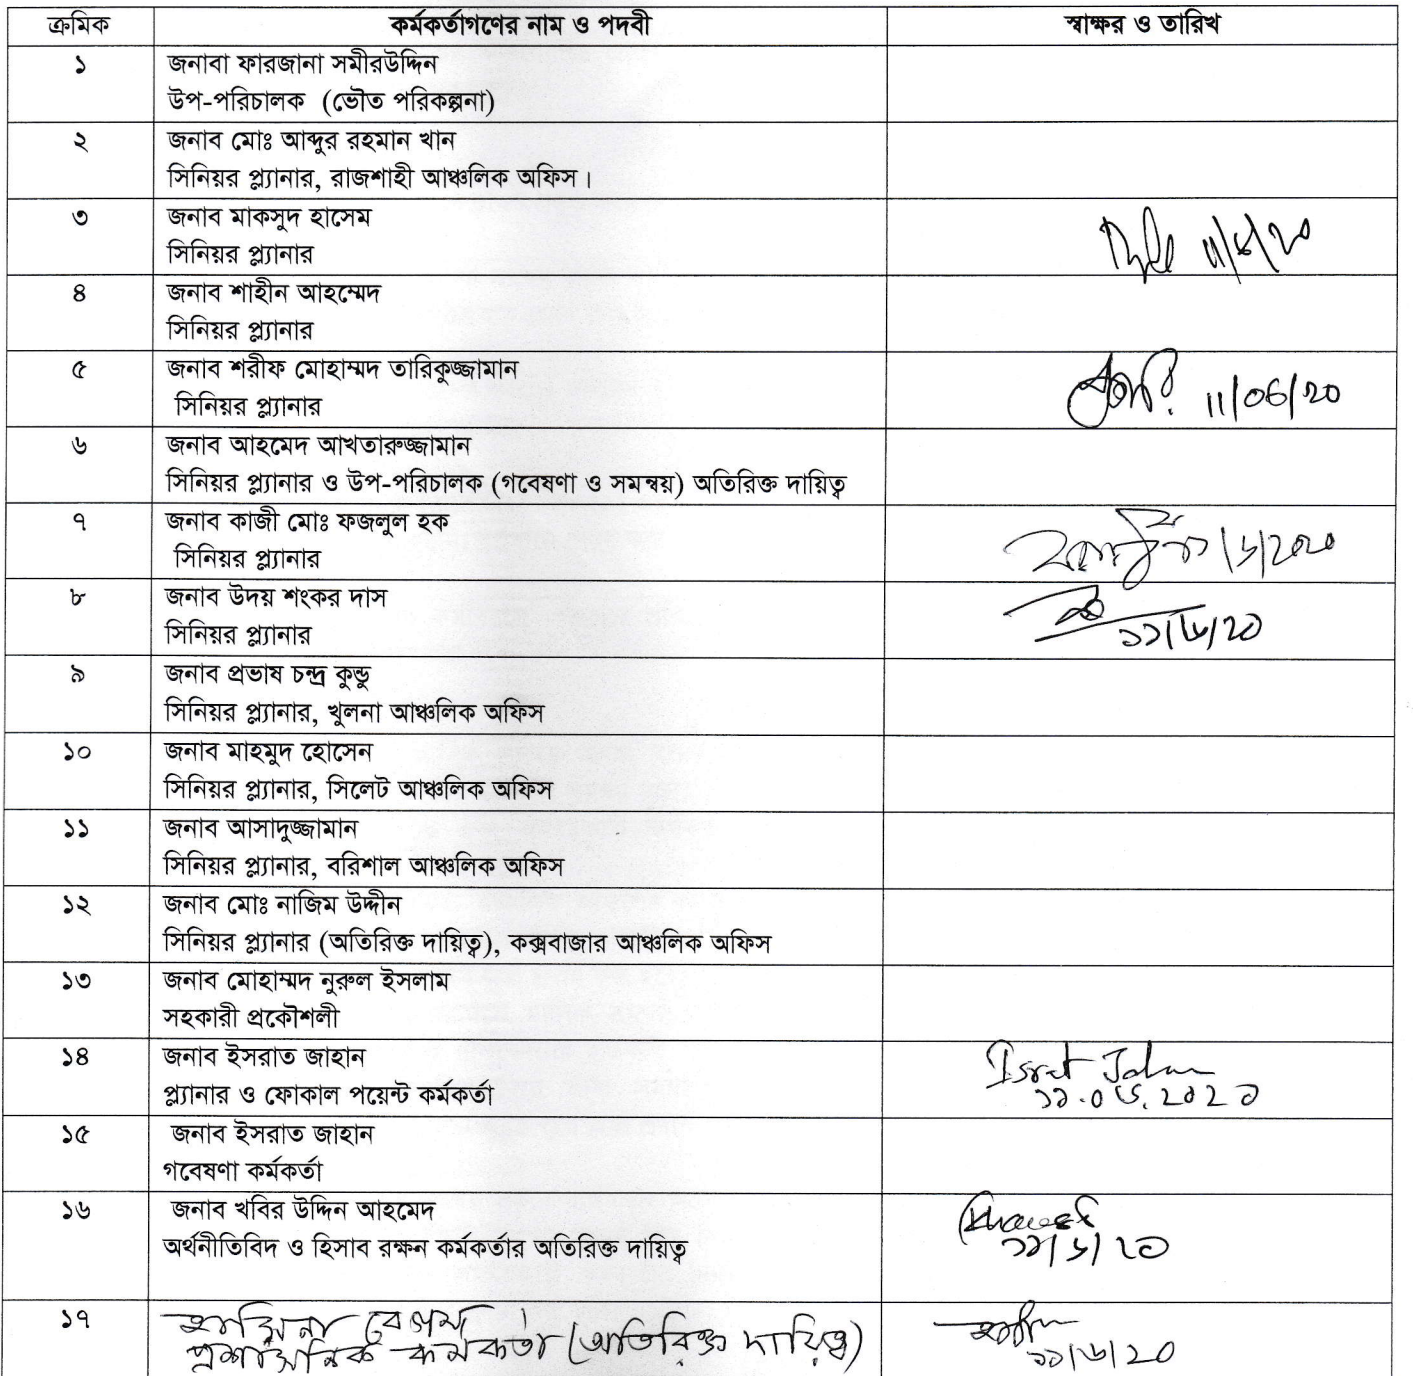 ক্রমিক কর্মকর্তাগণের নাম ও পদবী স্বাক্ষর ও তারিখ
১ জনাবা ফারজানা সমীরউদ্দিন
উপ-পরিচালক (ভৌত পরিকল্পনা)
২ জনাব মোঃ আব্দুর রহমান খান
সিনিয়র প্ল্যানার, রাজশাহী আঞ্চলিক অফিস।
৩ জনাব মাকসুদ হাসেম
সিনিয়র প্ল্যানার ১১/৬/২০
৪ জনাব শাহীন আহম্মেদ
সিনিয়র প্ল্যানার
৫ জনাব শরীফ মোহাম্মদ তারিকুজ্জামান
সিনিয়র প্ল্যানার 11/06/20
৬ জনাব আহমেদ আখতারুজ্জামান
সিনিয়র প্ল্যানার ও উপ-পরিচালক (গবেষণা ও সমন্বয়) অতিরিক্ত দায়িত্ব
৭ জনাব কাজী মোঃ ফজলুল হক
সিনিয়র প্ল্যানার
৮ জনাব উদয় শংকর দাস
সিনিয়র প্ল্যানার ১১/৬/২০
৯ জনাব প্রভাষ চন্দ্র কুন্ডু
সিনিয়র প্ল্যানার, খুলনা আঞ্চলিক অফিস
১০ জনাব মাহমুদ হোসেন
সিনিয়র প্ল্যানার, সিলেট আঞ্চলিক অফিস
১১ জনাব আসাদুজ্জামান
সিনিয়র প্ল্যানার, বরিশাল আঞ্চলিক অফিস
১২ জনাব মোঃ নাজিম উদ্দীন
সিনিয়র প্ল্যানার (অতিরিক্ত দায়িত্ব), কক্সবাজার আঞ্চলিক অফিস
১৩ জনাব মোহাম্মদ নুরুল ইসলাম
সহকারী প্রকৌশলী
১৪ জনাব ইসরাত জাহান Israt Jahan
প্ল্যানার ও ফোকাল পয়েন্ট কর্মকর্তা ১১.০৬.২০২০
১৫ জনাব ইসরাত জাহান
গবেষণা কর্মকর্তা
১৬ জনাব খবির উদ্দিন আহমেদ
অর্থনীতিবিদ ও হিসাব রক্ষন কর্মকর্তার অতিরিক্ত দায়িত্ব ১১/৬/২০
১৭ বেগম
প্রশাসনিক কর্মকর্তা (অতিরিক্ত দায়িত্ব) ১১/৬/২০